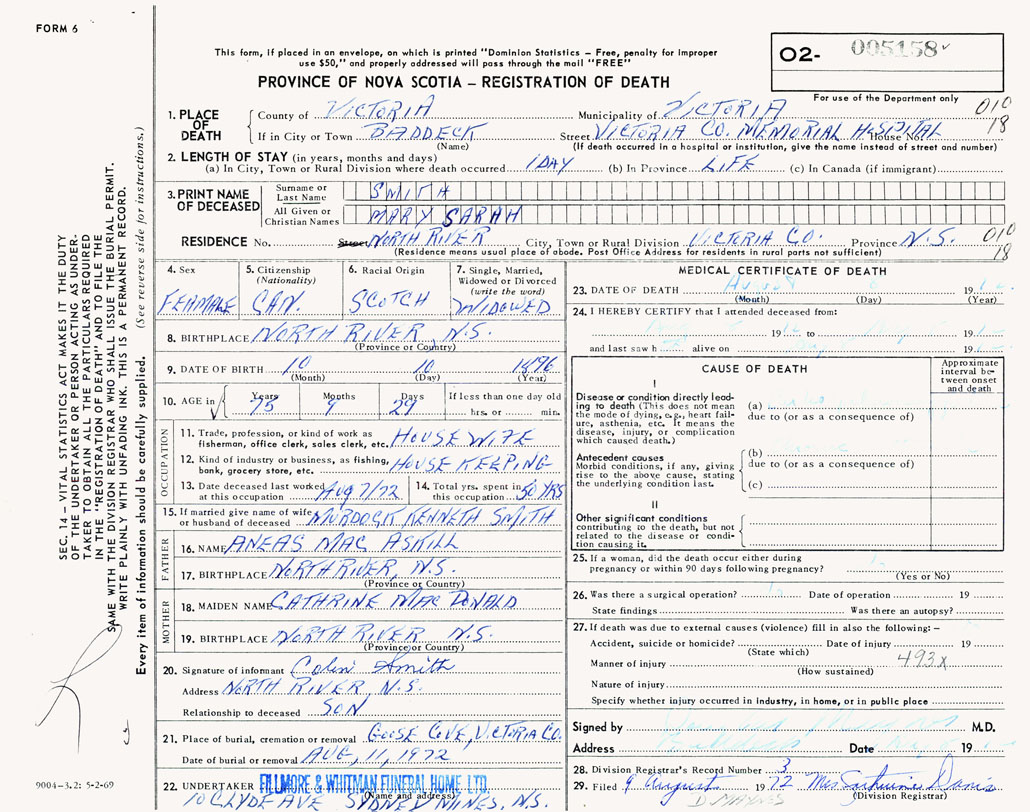 FORM 6
This form, if placed in an envelope, on which is printed "Dominion Statistics – Free, penalty for improper
use $50," and properly addressed will pass through the mail "FREE"
PROVINCE OF NOVA SCOTIA – REGISTRATION OF DEATH
O2- 005158
For use of the Department only
010
18
1. PLACE OF DEATH
County of VICTORIA Municipality of VICTORIA
If in City or Town BADDECK Street VICTORIA CO. MEMORIAL HOSPITAL House No.
(Name) (If death occurred in a hospital or institution, give the name instead of street and number)
2. LENGTH OF STAY (in years, months and days)
(a) In City, Town or Rural Division where death occurred 1 DAY (b) In Province LIFE (c) In Canada (if immigrant)
3. PRINT NAME OF DECEASED
Surname or Last Name SMITH
All Given or Christian Names MARY SARAH
RESIDENCE No. Street NORTH RIVER City, Town or Rural Division VICTORIA CO. Province N.S. 010
18
(Residence means usual place of abode. Post Office Address for residents in rural parts not sufficient)
4. Sex FEAMALE
5. Citizenship (Nationality) CAN.
6. Racial Origin SCOTCH
7. Single, Married, Widowed or Divorced (write the word) WIDOWED
8. BIRTHPLACE NORTH RIVER N.S.
(Province or Country)
9. DATE OF BIRTH 10 10 1896
(Month) (Day) (Year)
10. AGE in Years 75 Months 9 Days 29 If less than one day old
hrs. or min.
OCCUPATION
11. Trade, profession, or kind of work as fisherman, office clerk, sales clerk, etc. HOUSE WIFE
12. Kind of industry or business, as fishing, bank, grocery store, etc. HOUSE KEEPING
13. Date deceased last worked at this occupation Aug 7/72
14. Total yrs. spent in this occupation 50 YRS
15. If married give name of wife or husband of deceased MURDOCK KENNETH SMITH
FATHER
16. NAME ANEAS MAC ASKILL
17. BIRTHPLACE NORTH RIVER, N.S.
(Province or Country)
MOTHER
18. MAIDEN NAME CATHRINE MAC DONALD
19. BIRTHPLACE NORTH RIVER N.S.
(Province or Country)
20. Signature of informant Colin Smith
Address NORTH RIVER, N.S.
Relationship to deceased SON
21. Place of burial, cremation or removal GOOSE COVE, VICTORIA CO.
Date of burial or removal AUG, 11, 1972
22. UNDERTAKER FILLMORE & WHITMAN FUNERAL HOME LTD.
(Name and address)
10 CLYDE AVE SYDNEY MINES, N.S.
MEDICAL CERTIFICATE OF DEATH
23. DATE OF DEATH August 19
(Month) (Day) (Year)
24. I HEREBY CERTIFY that I attended deceased from:
19 to 19
and last saw h alive on 19
CAUSE OF DEATH
Approximate interval between onset and death
I
Disease or condition directly leading to death (This does not mean the mode of dying, e.g., heart failure, asthenia, etc. It means the disease, injury, or complication which caused death.)
(a)
due to (or as a consequence of)
Antecedent causes
Morbid conditions, if any, giving rise to the above cause, stating the underlying condition last.
(b)
due to (or as a consequence of)
(c)
II
Other significant conditions
contributing to the death, but not related to the disease or condition causing it.
25. If a woman, did the death occur either during
pregnancy or within 90 days following pregnancy?
(Yes or No)
26. Was there a surgical operation? Date of operation 19
State findings Was there an autopsy?
27. If death was due to external causes (violence) fill in also the following: –
Accident, suicide or homicide? Date of injury 19
(State which)
Manner of injury 493X
(How sustained)
Nature of injury
Specify whether injury occurred in industry, in home, or in public place
Signed by M.D.
Address Baddeck Date 19
28. Division Registrar's Record Number 3
29. Filed 9 August 1972 Mrs Davis
(Division Registrar)
SEC. 14 – VITAL STATISTICS ACT MAKES IT THE DUTY
OF THE UNDERTAKER OR PERSON ACTING AS UNDER-
TAKER TO OBTAIN ALL THE PARTICULARS REQUIRED
IN THE "REGISTRATION OF DEATH" AND TO FILE THE
SAME WITH THE DIVISION REGISTRAR WHO SHALL ISSUE THE BURIAL PERMIT.
WRITE PLAINLY WITH UNFADING INK. THIS IS A PERMANENT RECORD.
Every item of information should be carefully supplied. (See reverse side for instructions.)
9004-3.2: 5-2-69